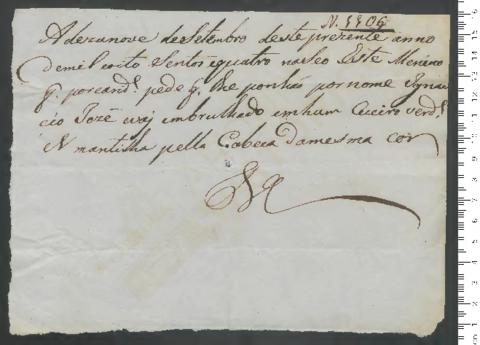 N. 1104
A dezanove de Setembro deste prezente anno
de mil oito Sentos i quatro naseo Este Menino
q. por card.e pede q. lhe ponhão por nome Igna
cio Jozé vai imbrulhado im hum Cueiro verd.e
N mantilha pella Cabeca da mesma cor